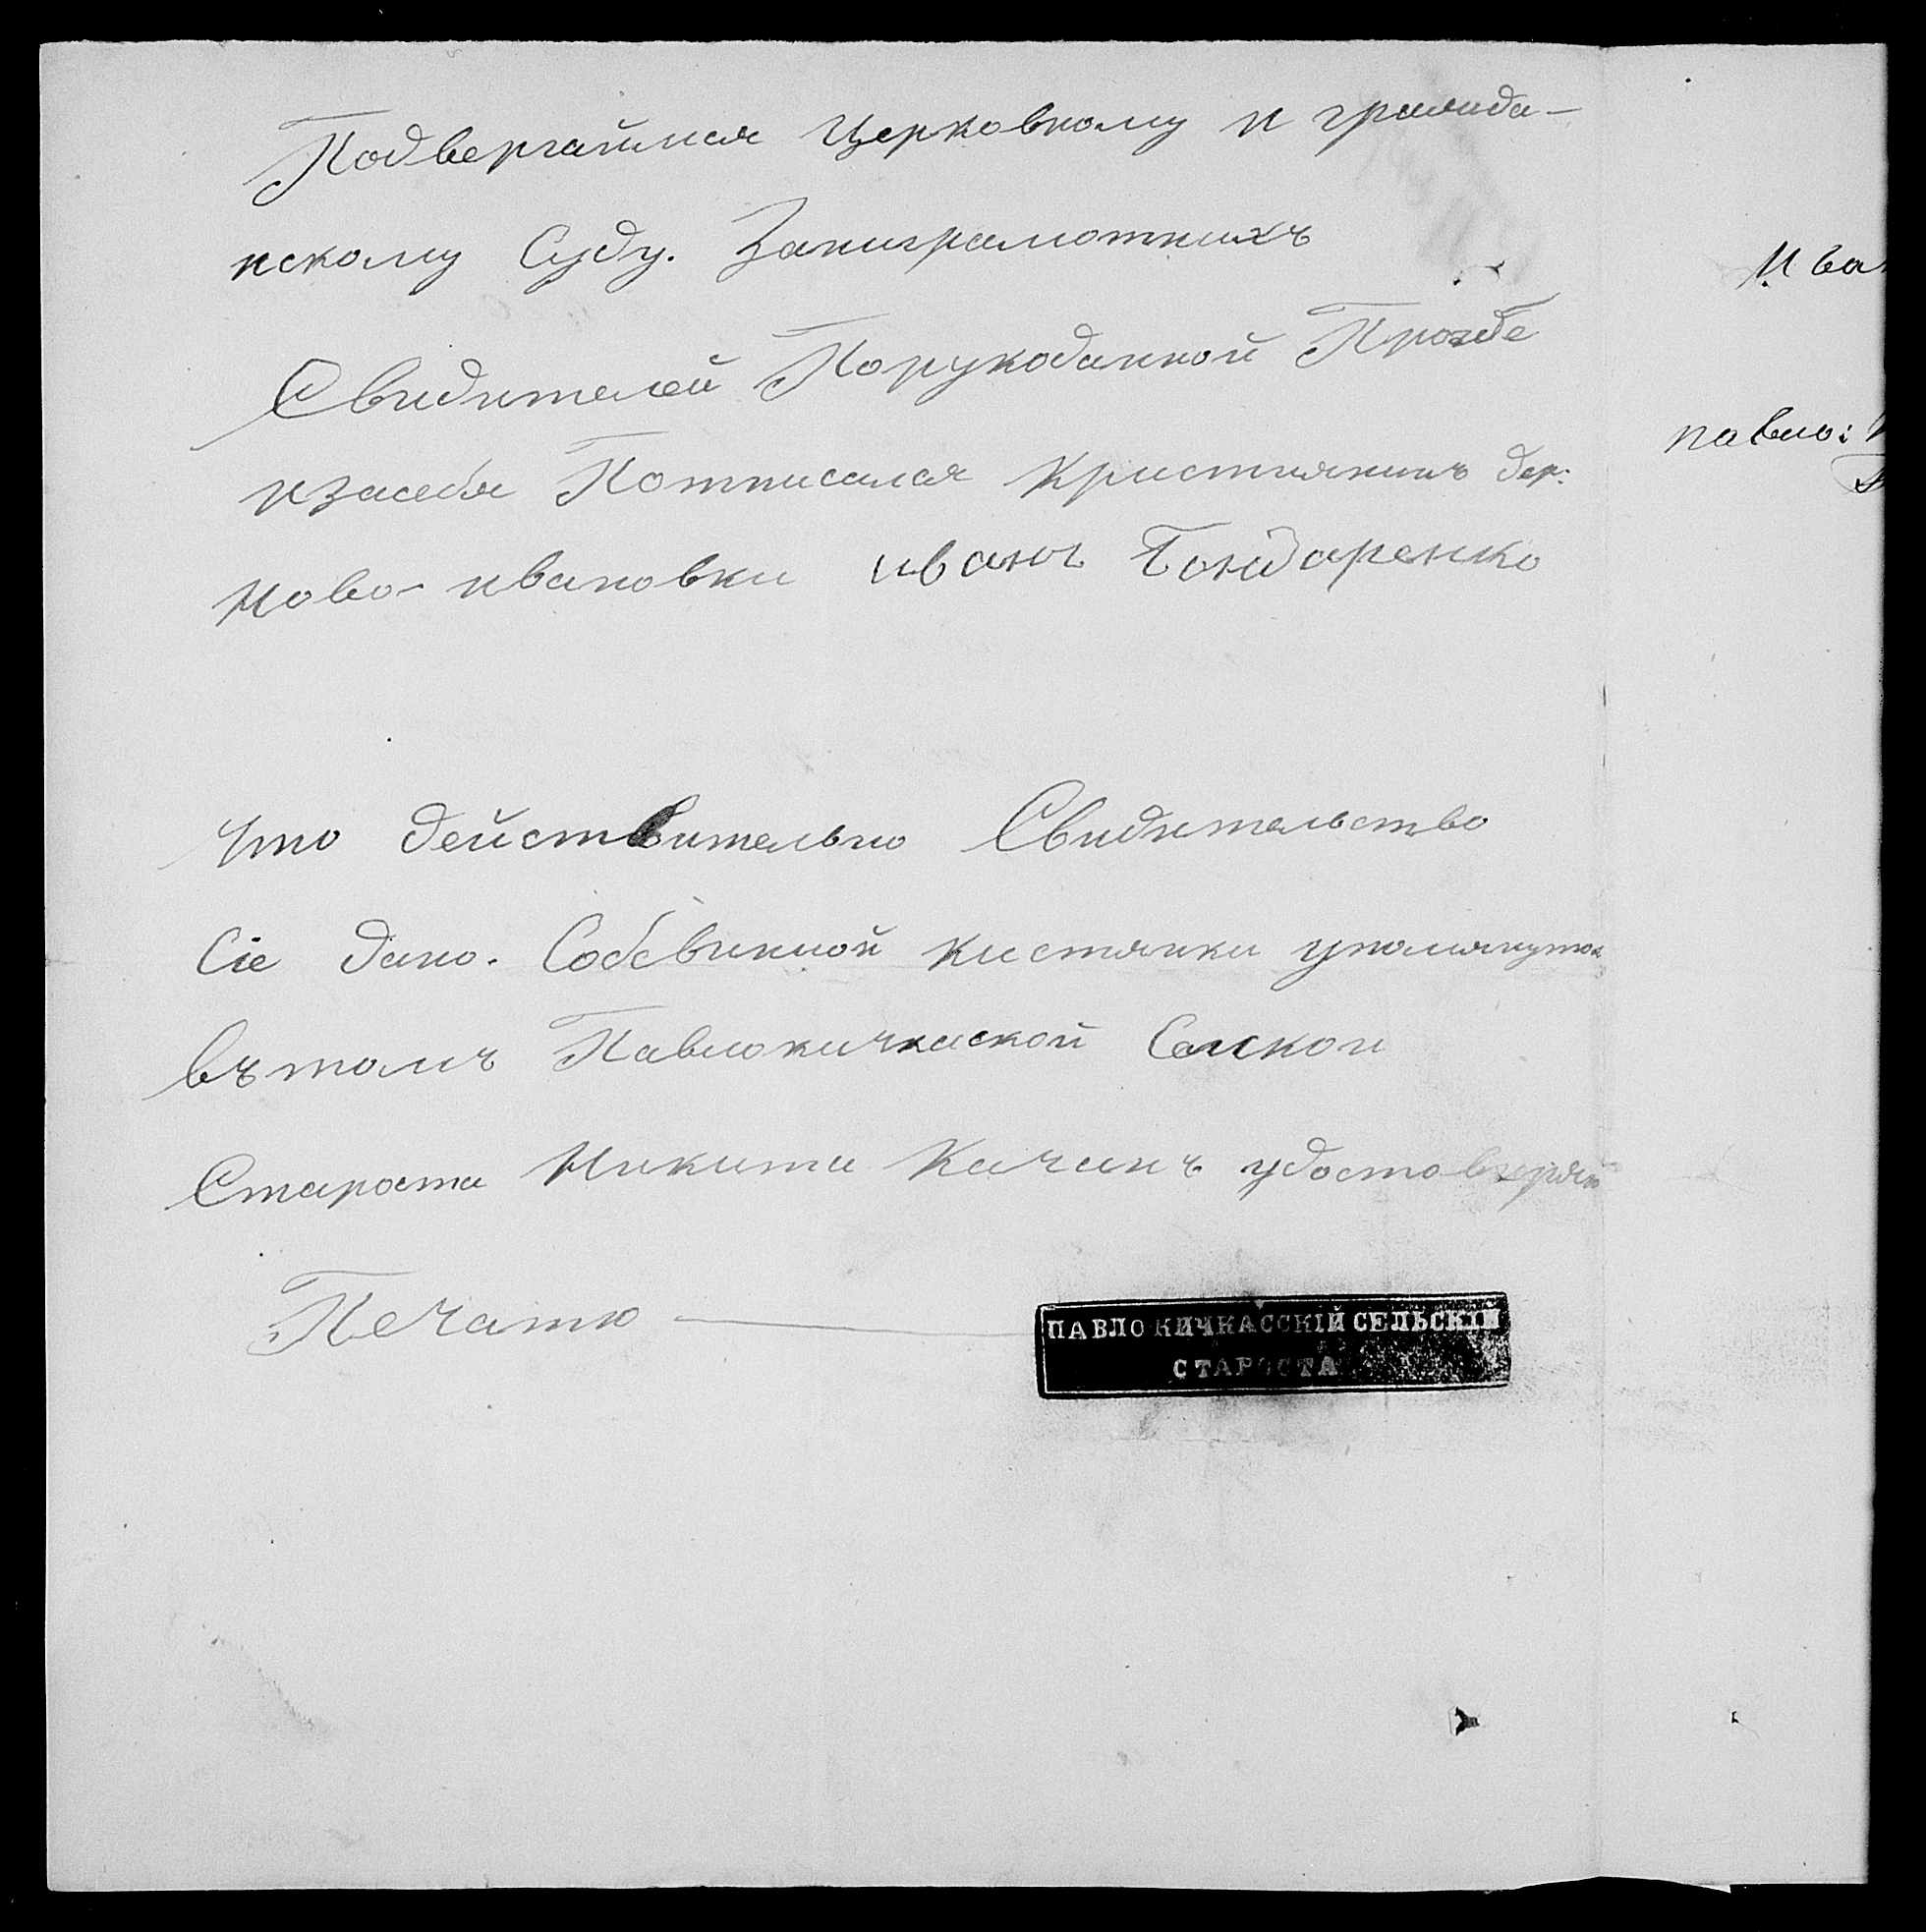 Подвергаимся Церковному и гражида-
нскому Суду. Заниграмотнихъ
Свидителей Порукоданной Прозбе
изасебя Потписался Кристиянинъ дер:
Ново-ивановки иванъ Бондаренко
Что действительно Свидительство
Сіе дано. Собсвиной кистянки упомянутой
въ томъ Павлокичкаской Селской
Староста Никита Качанъ удостовиряю
Печатю
ПАВЛО КИЧКАССКІЙ СЕЛЬСКІЙ
СТАРОСТА
Ива
павло: